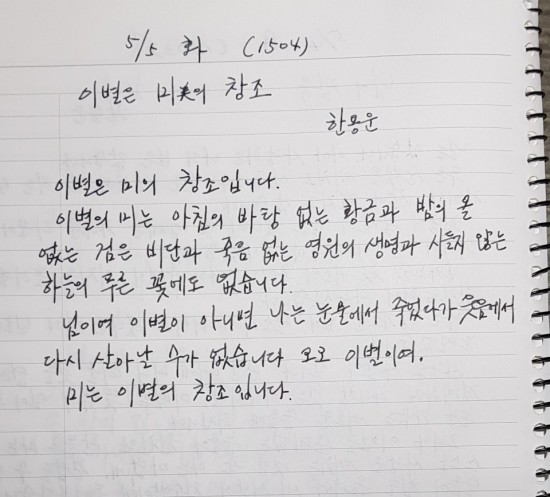 5/5 화 (1504)
이별은 미美의 창조
한용운
이별은 미의 창조입니다.
이별의 미는 아침의 바탕 없는 황금과 밤의 올
없는 검은 비단과 죽음 없는 영원의 생명과 시들지 않는
하늘의 푸른 꽃에도 없습니다.
님이여 이별이 아니면 나는 눈물에서 죽었다가 웃음에서
다시 살아날 수가 없습니다 오오 이별이여.
미는 이별의 창조입니다.